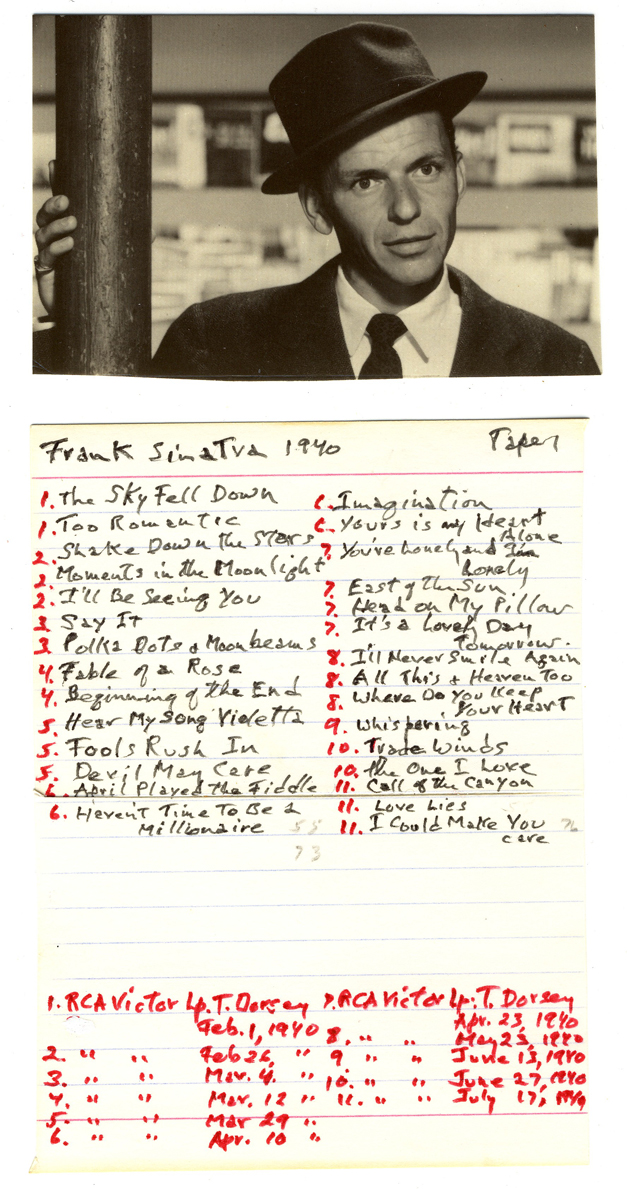 Frank Sinatra 1940
Tape 1
1. The Sky Fell Down
1. Too Romantic
2. Shake Down the Stars
2. Moments in the Moonlight
2. I'll Be Seeing You
3. Say It
3. Polka Dots & Moonbeams
4. Fable of a Rose
4. Beginning of the End
5. Hear My Song Violetta
5. Fools Rush In
5. Devil May Care
6. April Played the Fiddle
6. Haven't Time To Be a
Millionaire 58
73
6. Imagination
6. Yours is my Heart
Alone
7. You're Lonely and I'm
Lonely
7. East of the Sun
7. Head on My Pillow
7. It's a Lovely Day
Tomorrow.
8. I'll Never Smile Again
8. All This & Heaven Too
8. Where Do You Keep
Your Heart
9. Whispering
10. Trade Winds
10. The One I Love
11. Call of the Canyon
11. Love Lies
11. I Could Make You 76
care
1. RCA Victor Lp. T. Dorsey
Feb. 1, 1940
2. " " Feb 26, "
3. " " Mar. 4. "
4. " " Mar. 12 "
5. " " Mar 29 "
6. " " Apr. 10 "
7. RCA Victor Lp. T. Dorsey
Apr. 23, 1940
8. " " May 23, 1940
9 " " June 13, 1940
10. " " June 27, 1940
11. " " July 17, 1940